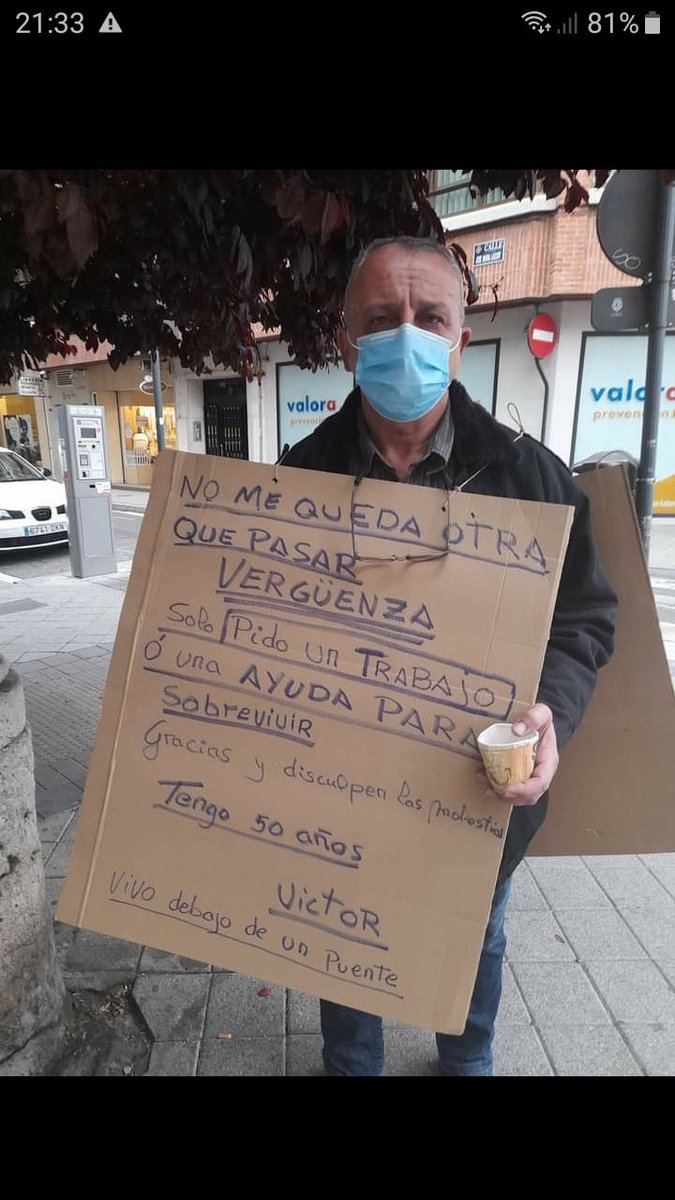 21:33
81%
CALLE
valora
prevención
valora
prevención
6741 DKN
NO ME QUEDA OTRA
QUE PASAR
VERGÜENZA
Solo Pido un TRABAJO
Ó una AYUDA PARA
Sobrevivir
Gracias y disculpen las molestias
Tengo 50 años
Victor
Vivo debajo de un Puente